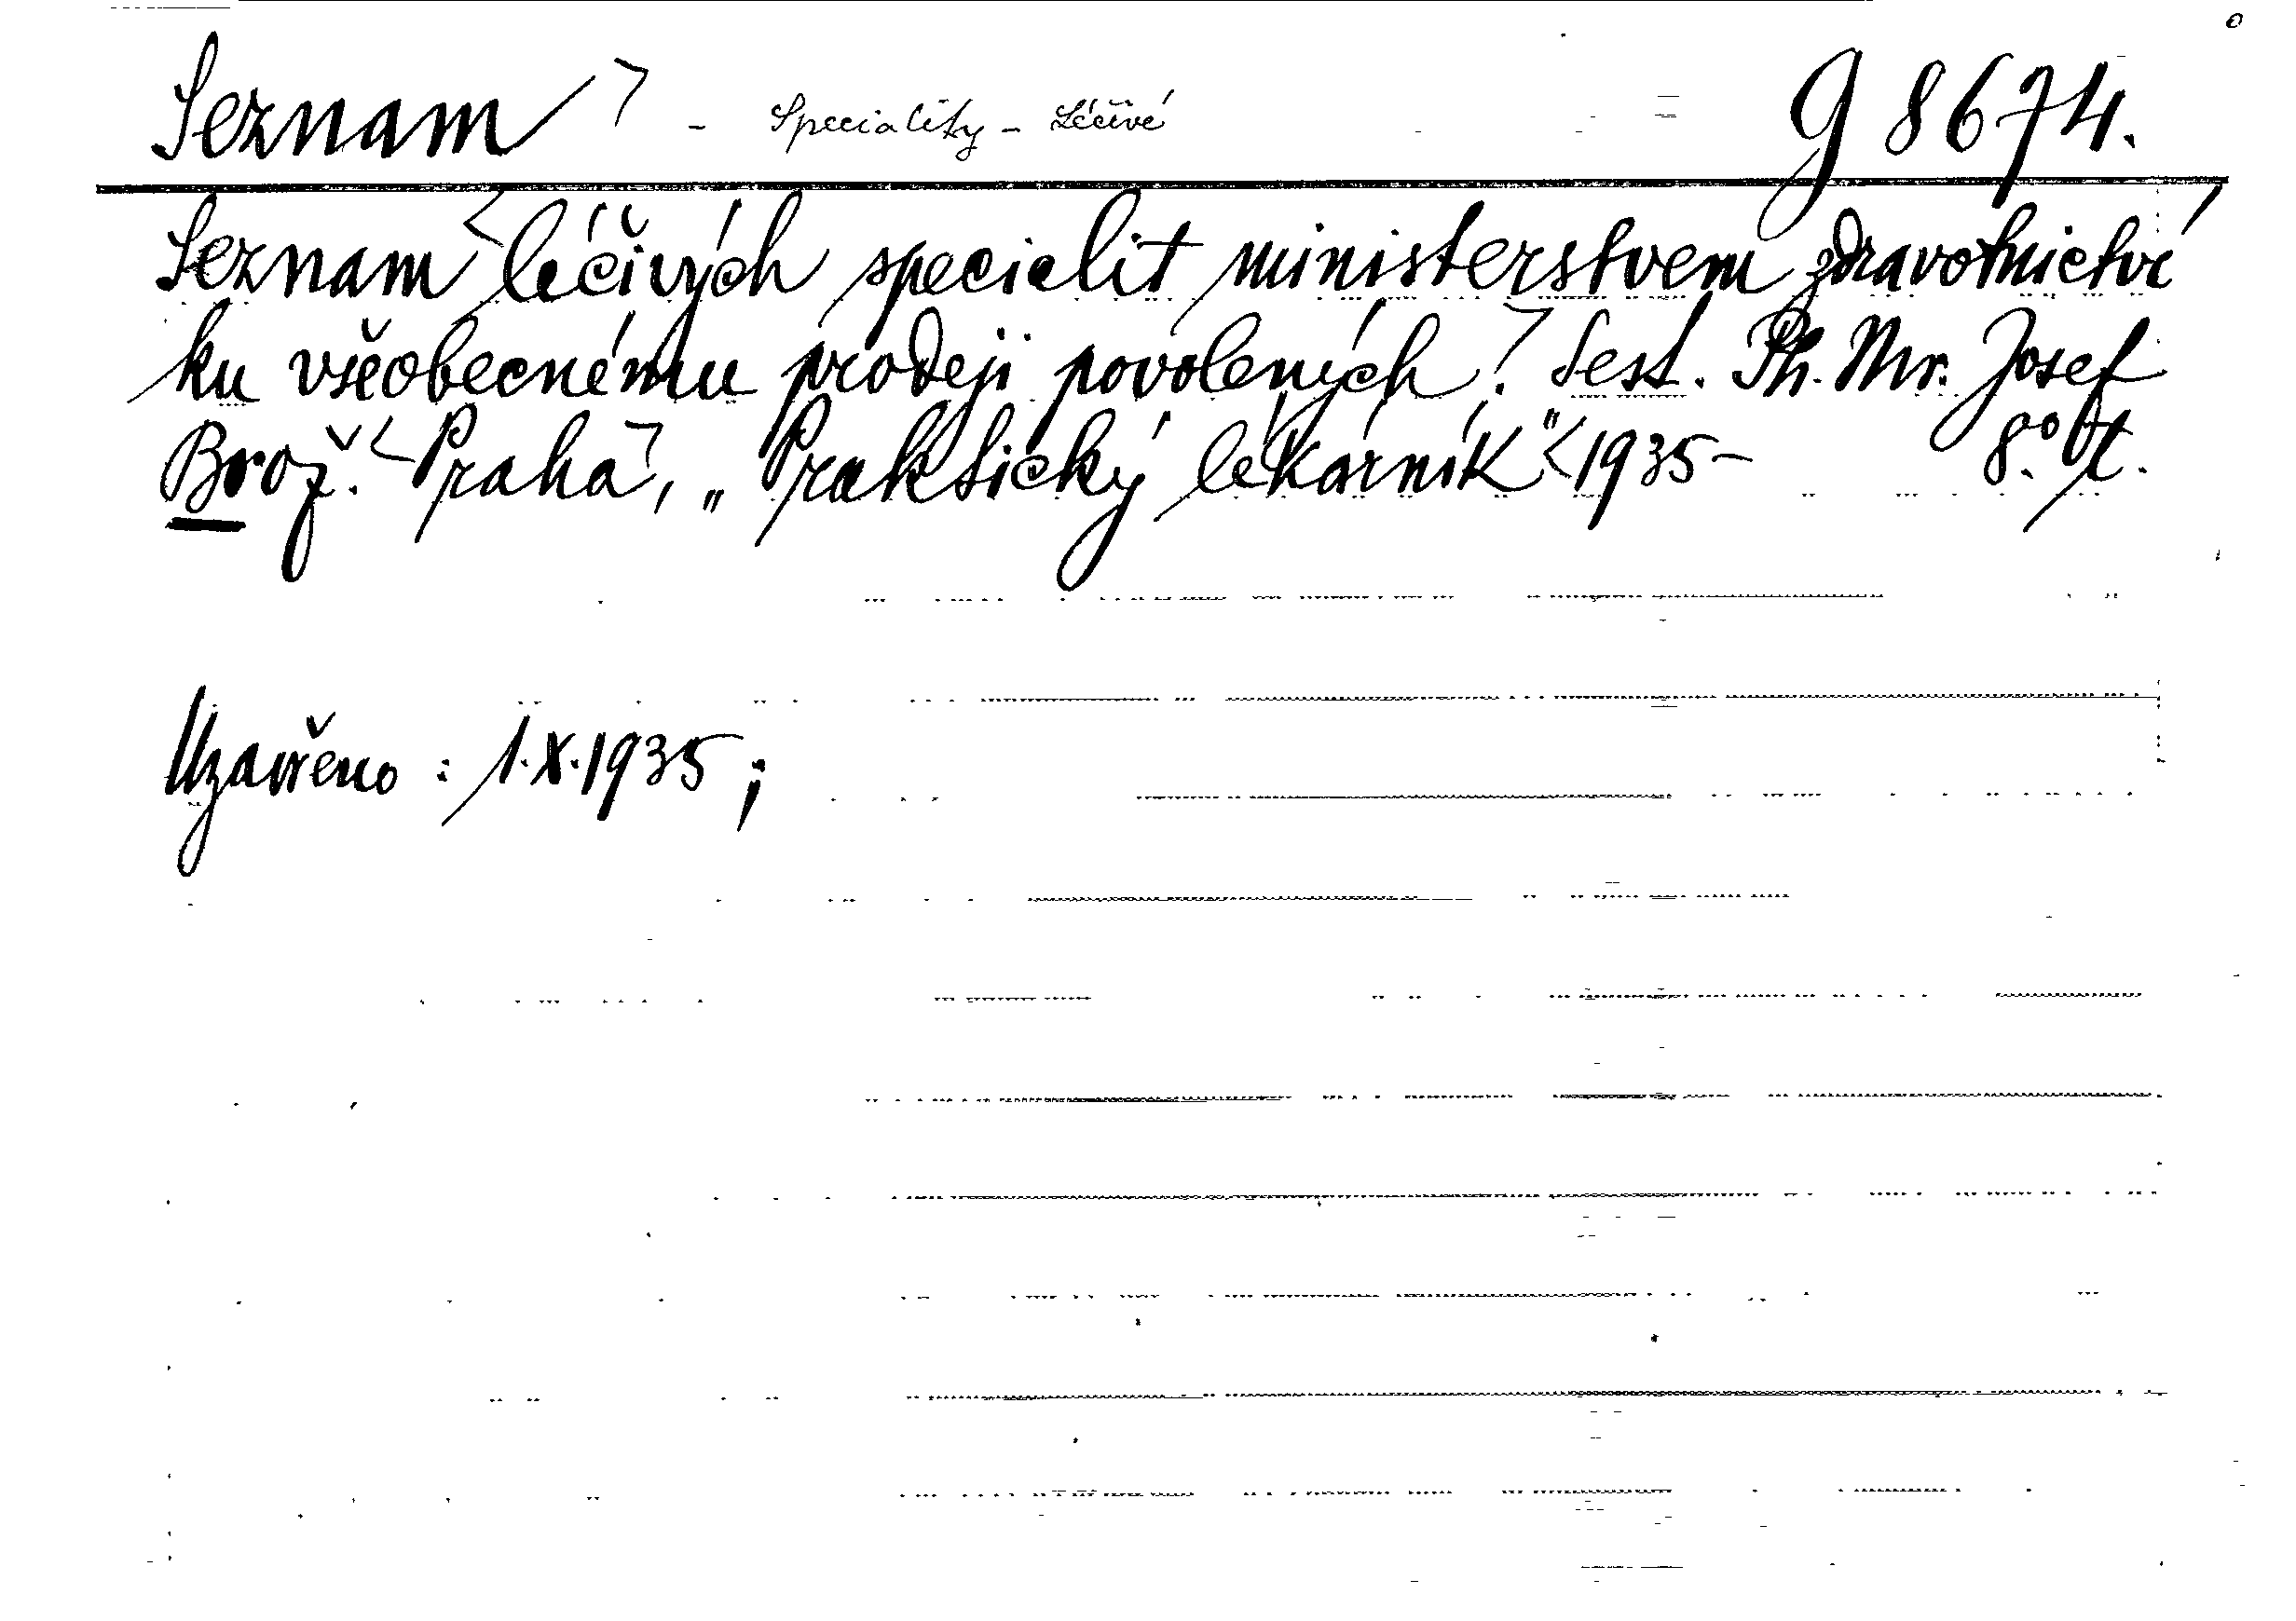 Seznam - Speciality - Léčivé G 8674.
Seznam léčivých specialit ministerstvem zdravotnictví
ku všeobecnému prodeji povolených. Sest. Ph. Mr. Josef
Brož. Praha, „Praktický lékárník" 1935- 8.° t.
Uzavřeno : 1.X.1935 ;